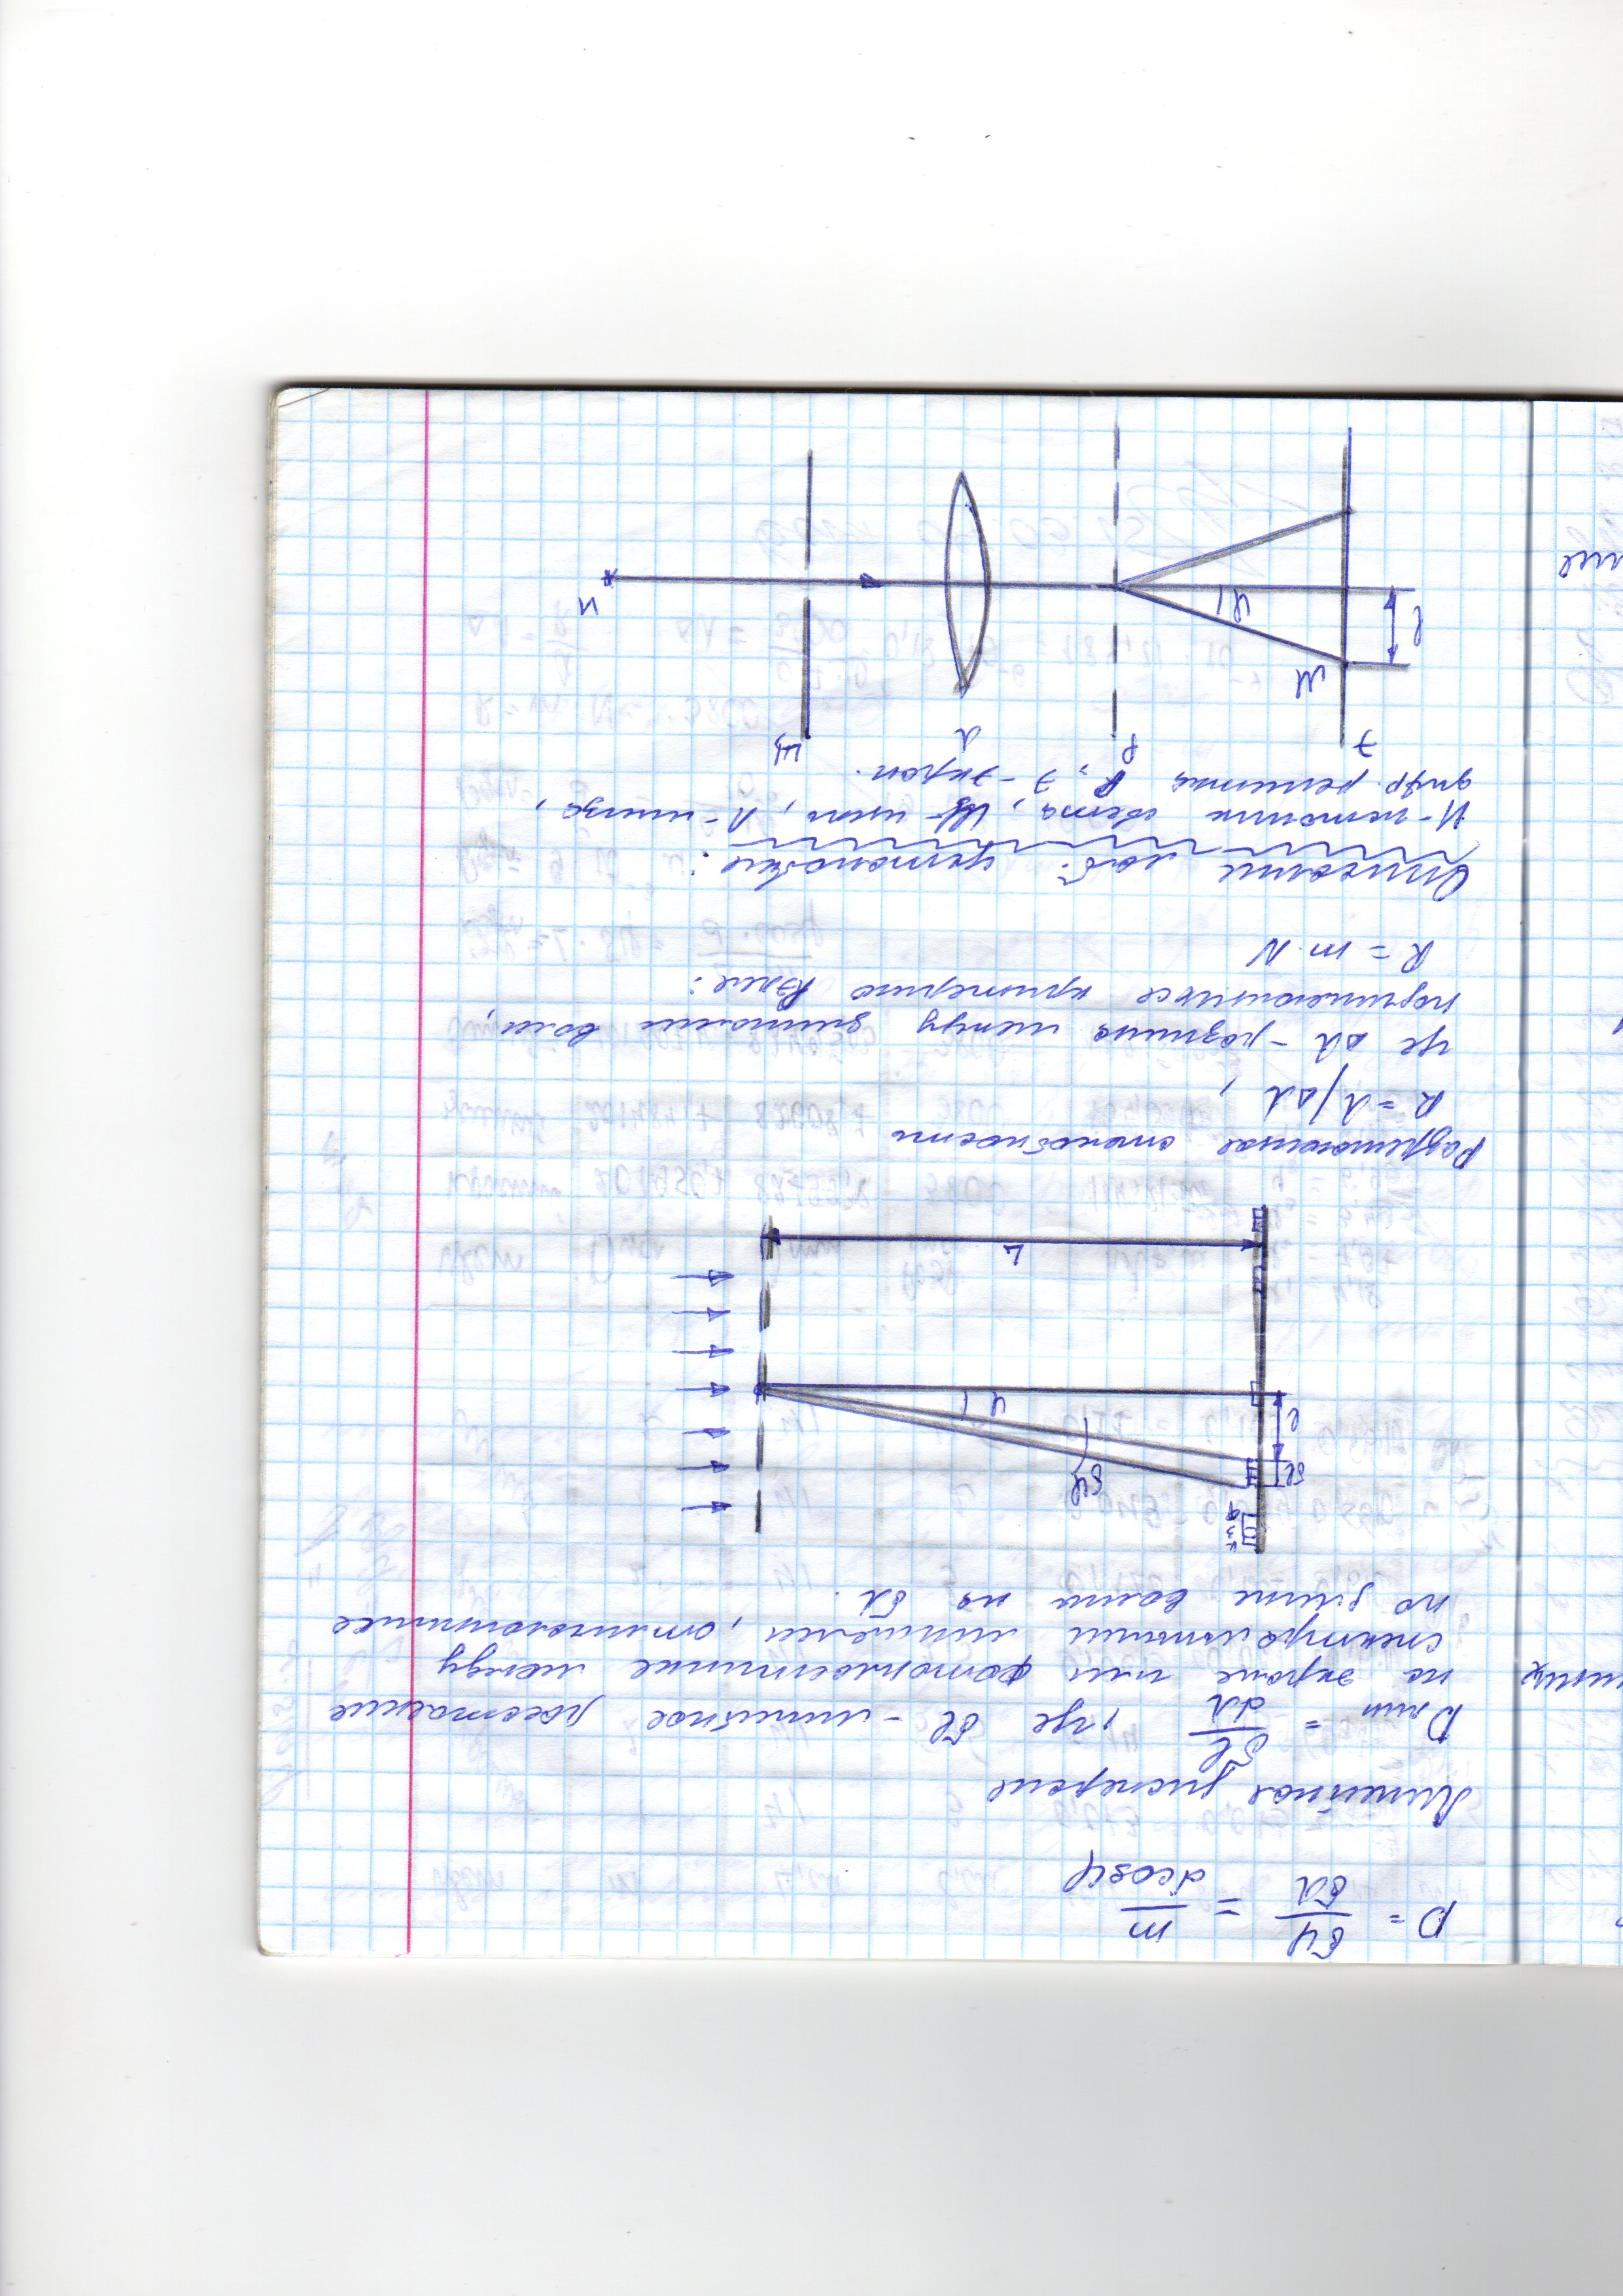 D = δφ/δλ = m/(d cosφ)
Линейная дисперсия
Dлин = δl/dλ , где δl - линейное расстояние
на экране или фотопластинке между
спектральными линиями, отличающимися
по длине волны на δλ.
к
з
ф
δl
δφ
l
φ
L
Разрешающая способность
R = λ/Δλ ,
где Δλ - разница между длинами волн,
подчиняющихся критерию Рэлея:
R = m·N
Описание лаб. установки:
И - источник света, Щ - щель, Л - линза,
дифр. решетка Р, Э - экран.
Э Р Л Щ
М
l
φ
И